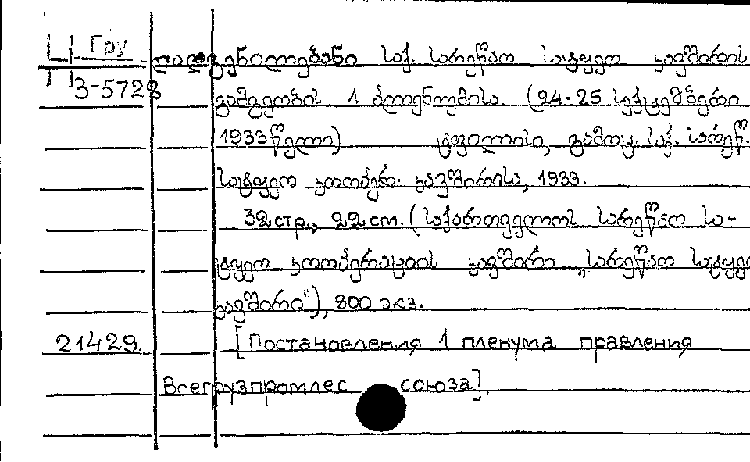 Гру
3-5728
დადგენილებანი საქ. სარეწაო სატყეო კავშირის
გამგეობის 1 პლენუმისა. (24-25 სექტემბერი
1933 წელი) ტფილისი, გამოც. საქ. სარეწ.
სატყეო კოოპერ. კავშირისა, 1933.
32 стр., 22 см. (საქართველოს სარეწაო სა-
ტყეო კოოპერაციის კავშირი „სარეწაო სატყეო
კავშირი"), 800 экз.
21429. [Постановления 1 пленума правления
Всегрузпромлес союза].